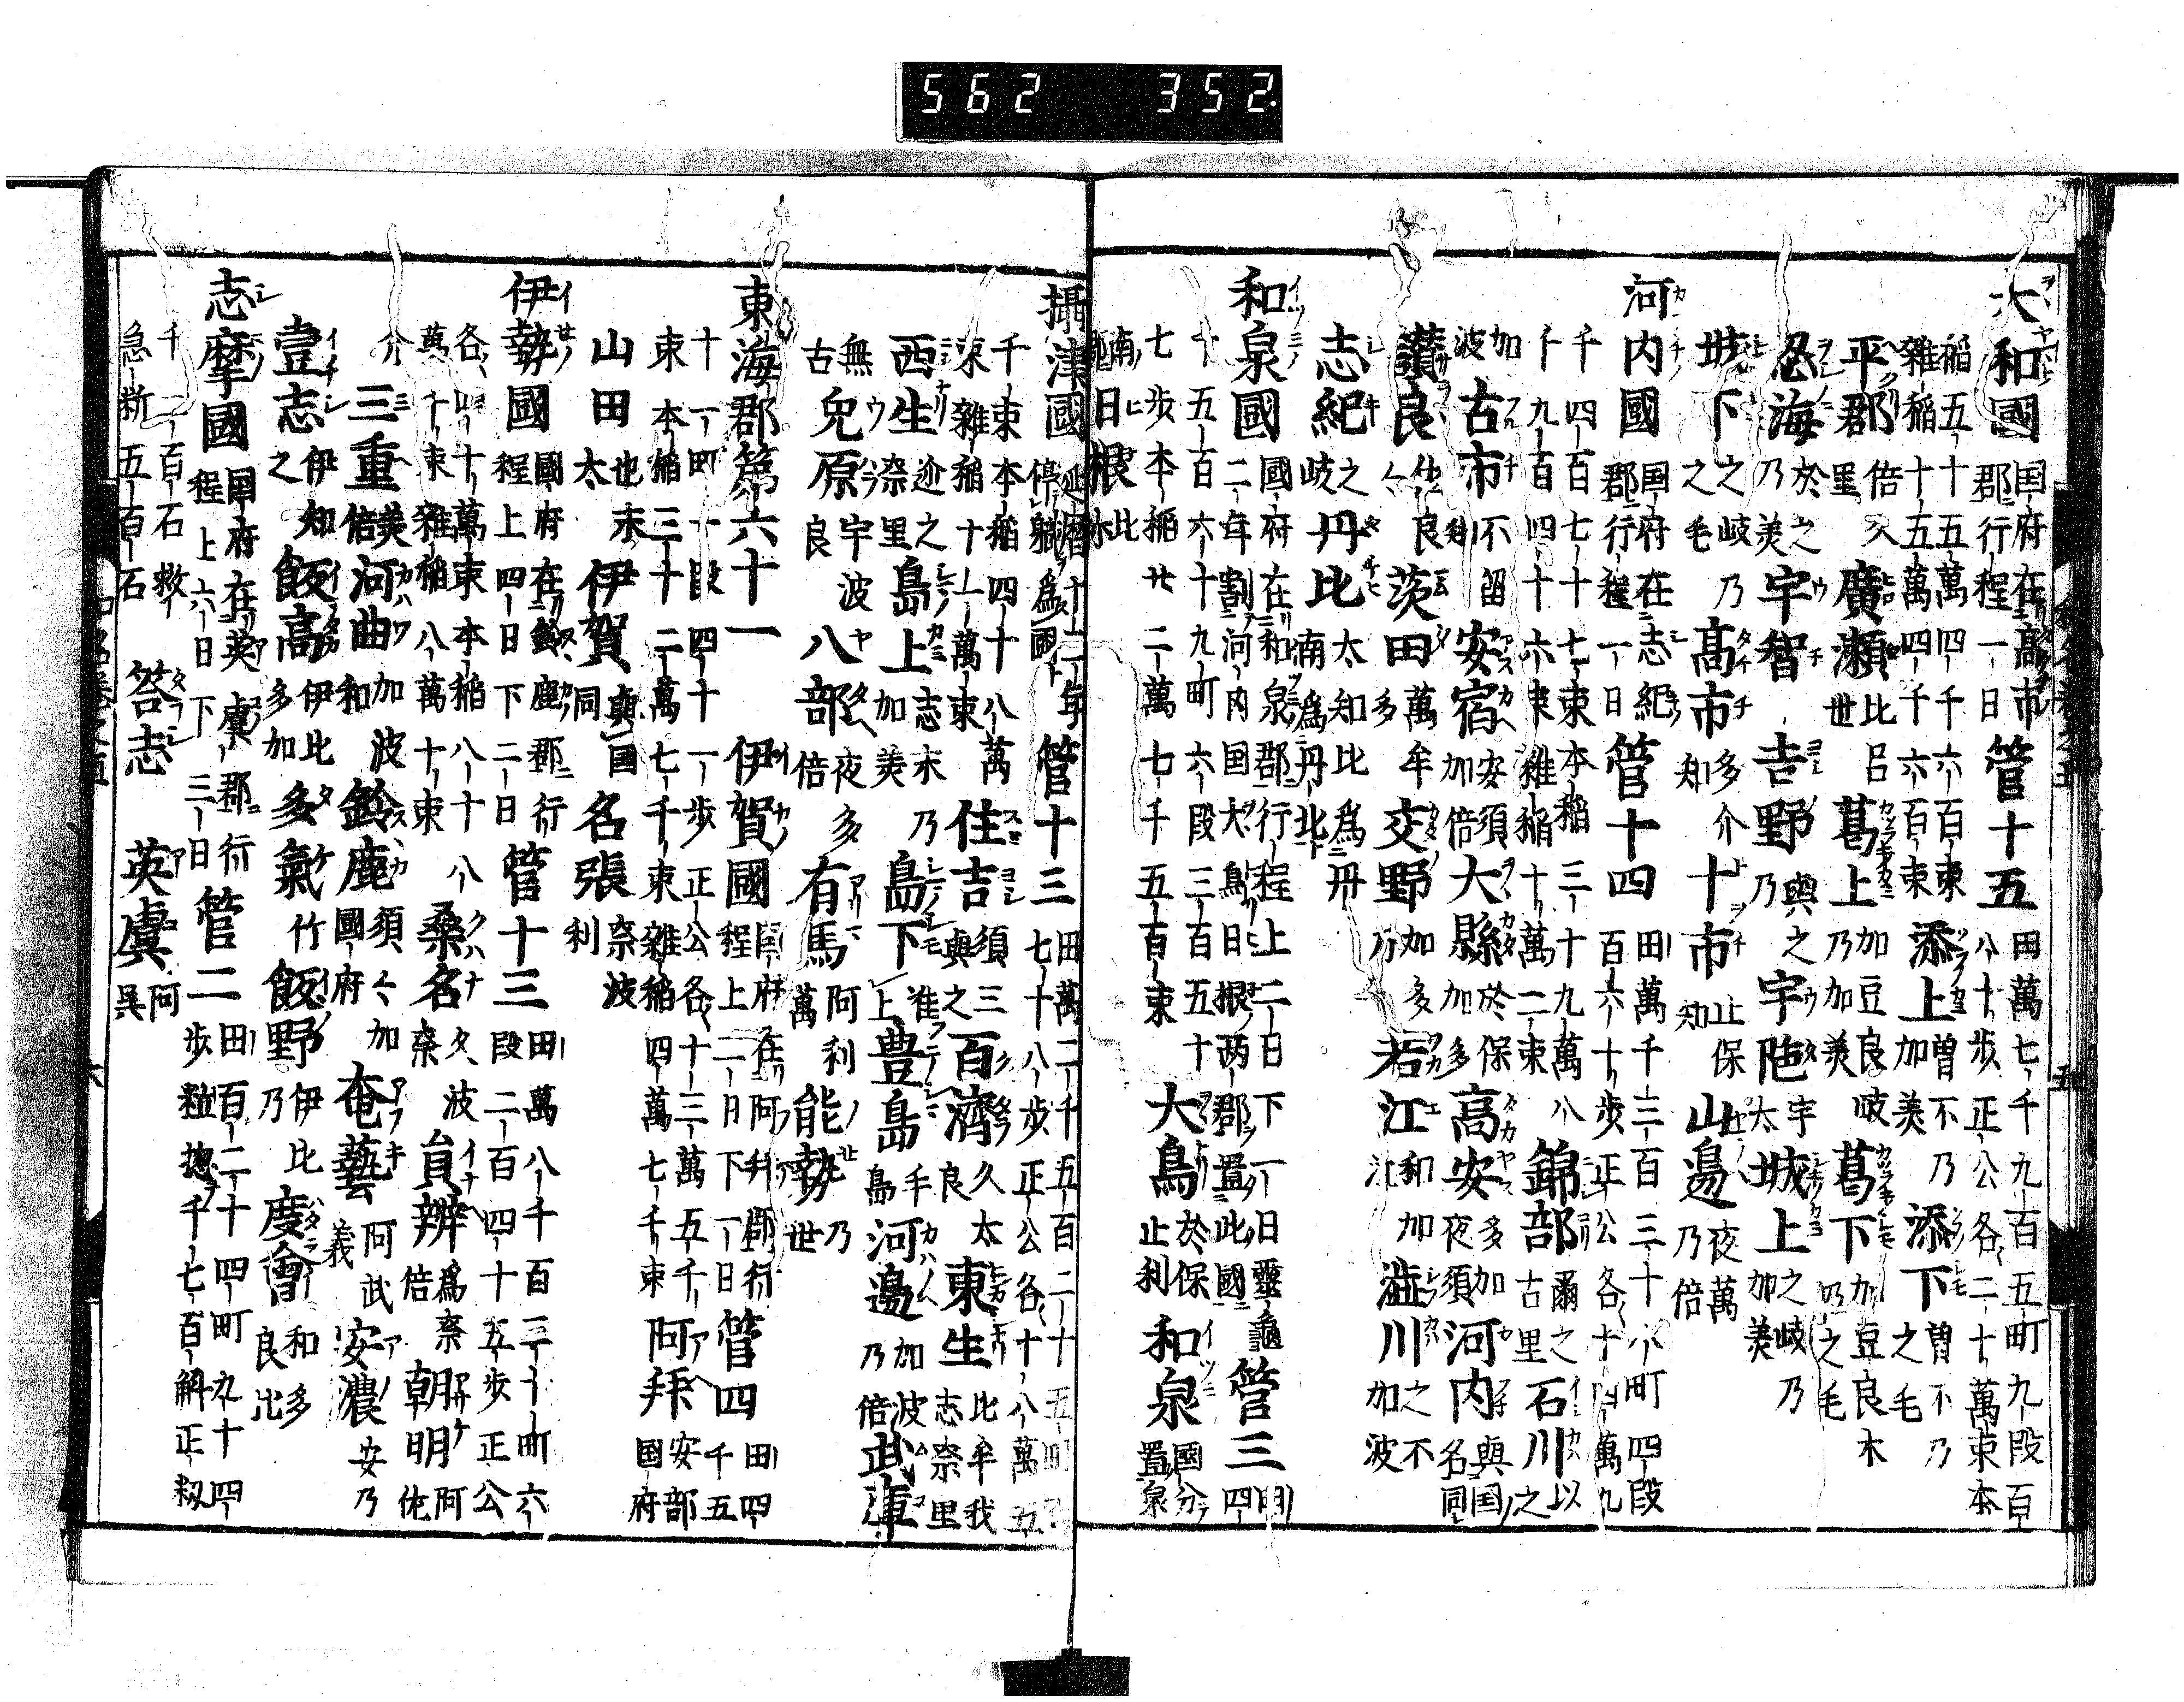 562 352.
大和國 国府在高市郡行程一日 管十五 田萬七千九百五町九段百八十歩正公各二十萬束本
稲五十五萬四千六百束雜稲十五萬四千六百束 添上 曽不乃加美 添下 曽不乃之毛
平群 倍久里 廣瀬 比呂世 葛上 加豆良岐乃加美 葛下 加豆良木乃之毛
忍海 於之乃美 宇智 吉野 與之乃 宇陁 宇太 城上 之岐乃加美
城下 之岐乃之毛 髙市 多介知 十市 止保知 山邊 夜萬乃倍
河内國 国府在志紀郡行程一日 管十四 田萬千三百三十八町四段百六十歩正公各十四萬九
千四百七十七束本稲三十九萬八千九百四十六束雜稲十萬二束 錦部 爾之古里 石川 以之加波
古市 不留知 安宿 安須加倍 大縣 於保加多 高安 多加夜須 河内 與国名同
讃良 佐良 茨田 萬牟多 交野 加多乃 若江 和加江 澁川 之不加波
志紀 之岐 丹比 太知比為丹南為丹北
和泉國 國府在和泉郡行程上二日下一日靈龜二年割河内国大鳥日根两郡置此國 管三 田四
千五百六十九町六段三百五十 大鳥 於保止利 和泉 國分置泉南
七歩本稲廿二萬七千五百束 日根 比
攝津國 延暦十二年停職為國 管十三 田萬二千五百二十五町七十八歩正公各十八萬五
千束本稲四十八萬束雜稲十一萬束 住吉 須三與之 百濟 久太良 東生 比牟我志奈里
西生 逈之奈里 島上 志末乃加美 島下 准上 豊島 手島 河邊 加波乃倍 武庫
無古 兔原 宇波良 八部 夜多倍 有馬 阿利萬 能勢 乃世
東海郡第六十一 伊賀國 国府在阿拜郡行程上二日下一日 管四 田四千五
十一町十段四十一歩正公各十三萬五千束本稲三十二萬七千束雜稲四萬七千束 阿拜 安部国府
山田 太 伊賀 與国同 名張 奈波利
伊勢國 國府在鈴鹿郡行程上四日下二日 管十三 田萬八千百三十町六段二百四十五歩正公
各四十萬束本稲八十八萬十束雜稲八萬十束 桑名 久波奈 員辨 為奈倍 朝明 阿佐介
三重 美倍 河曲 加波和 鈴鹿 須々加國府 奄藝 阿武義 安濃 安乃
壹志 伊知之 飯高 伊比多加 多氣 竹 飯野 伊比乃 度會 和多良比
志摩國 国府在英虞郡行程上六日下三日 管二 田百二十四町九十四歩粒惣千七百斛正籾
千二百石救急析五百石 答志 英虞 阿呉